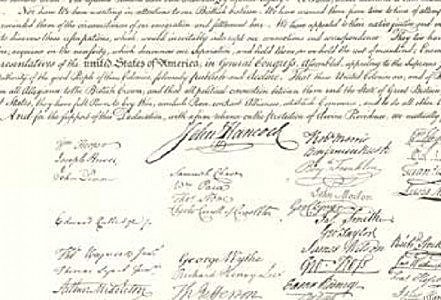 Nor have We been wanting in attentions to our British brethren. We have warned them from time to time of attemp
reminded them of the circumstances of our emigration and settlement here. We have appealed to their native justice and
to disavow these usurpations, which would inevitably interrupt our connections and correspondence. They too have
acquiesce in the necessity, which denounces our Separation, and hold them, as we hold the rest of mankind, Enemies
presentatives of the united States of America, in General Congress, Assembled, appealing to the Supreme
Authority of the good People of these Colonies, solemnly publish and declare, That these United Colonies are, and of
all Allegiance to the British Crown, and that all political connection between them and the State of Great Britain
States, they have full Power to levy War, conclude Peace, contract Alliances, establish Commerce, and to do all other
And for the support of this Declaration, with a firm reliance on the protection of divine Providence, we mutually
John Hancock
Rob Morris
Wm Hooper
Benjamin Rush
Joseph Hewes
Samuel Chase
Benj. Franklin
John Penn
Wm Paca
Thos Stone
John Morton
Charles Carroll of Carrollton
Geo Clymer
Edward Rutledge
Jas. Smith
Geo. Taylor
George Wythe
James Wilson
Richard Henry Lee
Geo. Ross
Arthur Middleton
Th Jefferson
Caesar Rodney